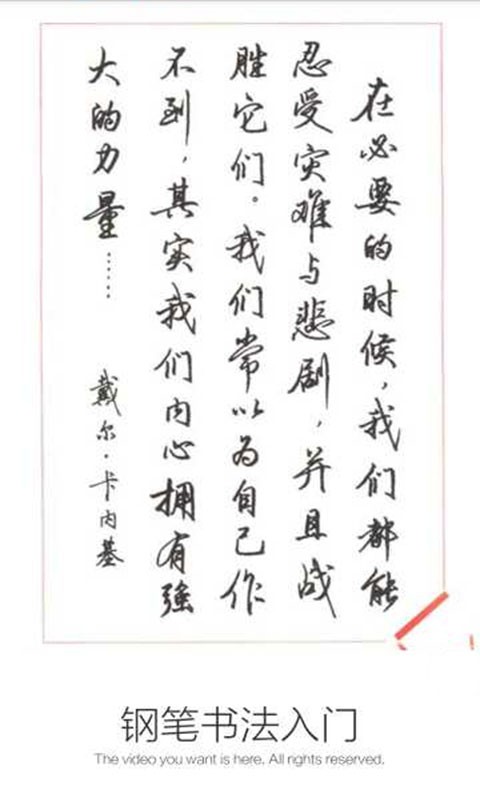 在必要的时候，我们都能
忍受灾难与悲剧，并且战
胜它们。我们常以为自己作
不到，其实我们内心拥有强
大的力量……
戴尔·卡内基
钢笔书法入门
The video you want is here. All rights reserved.